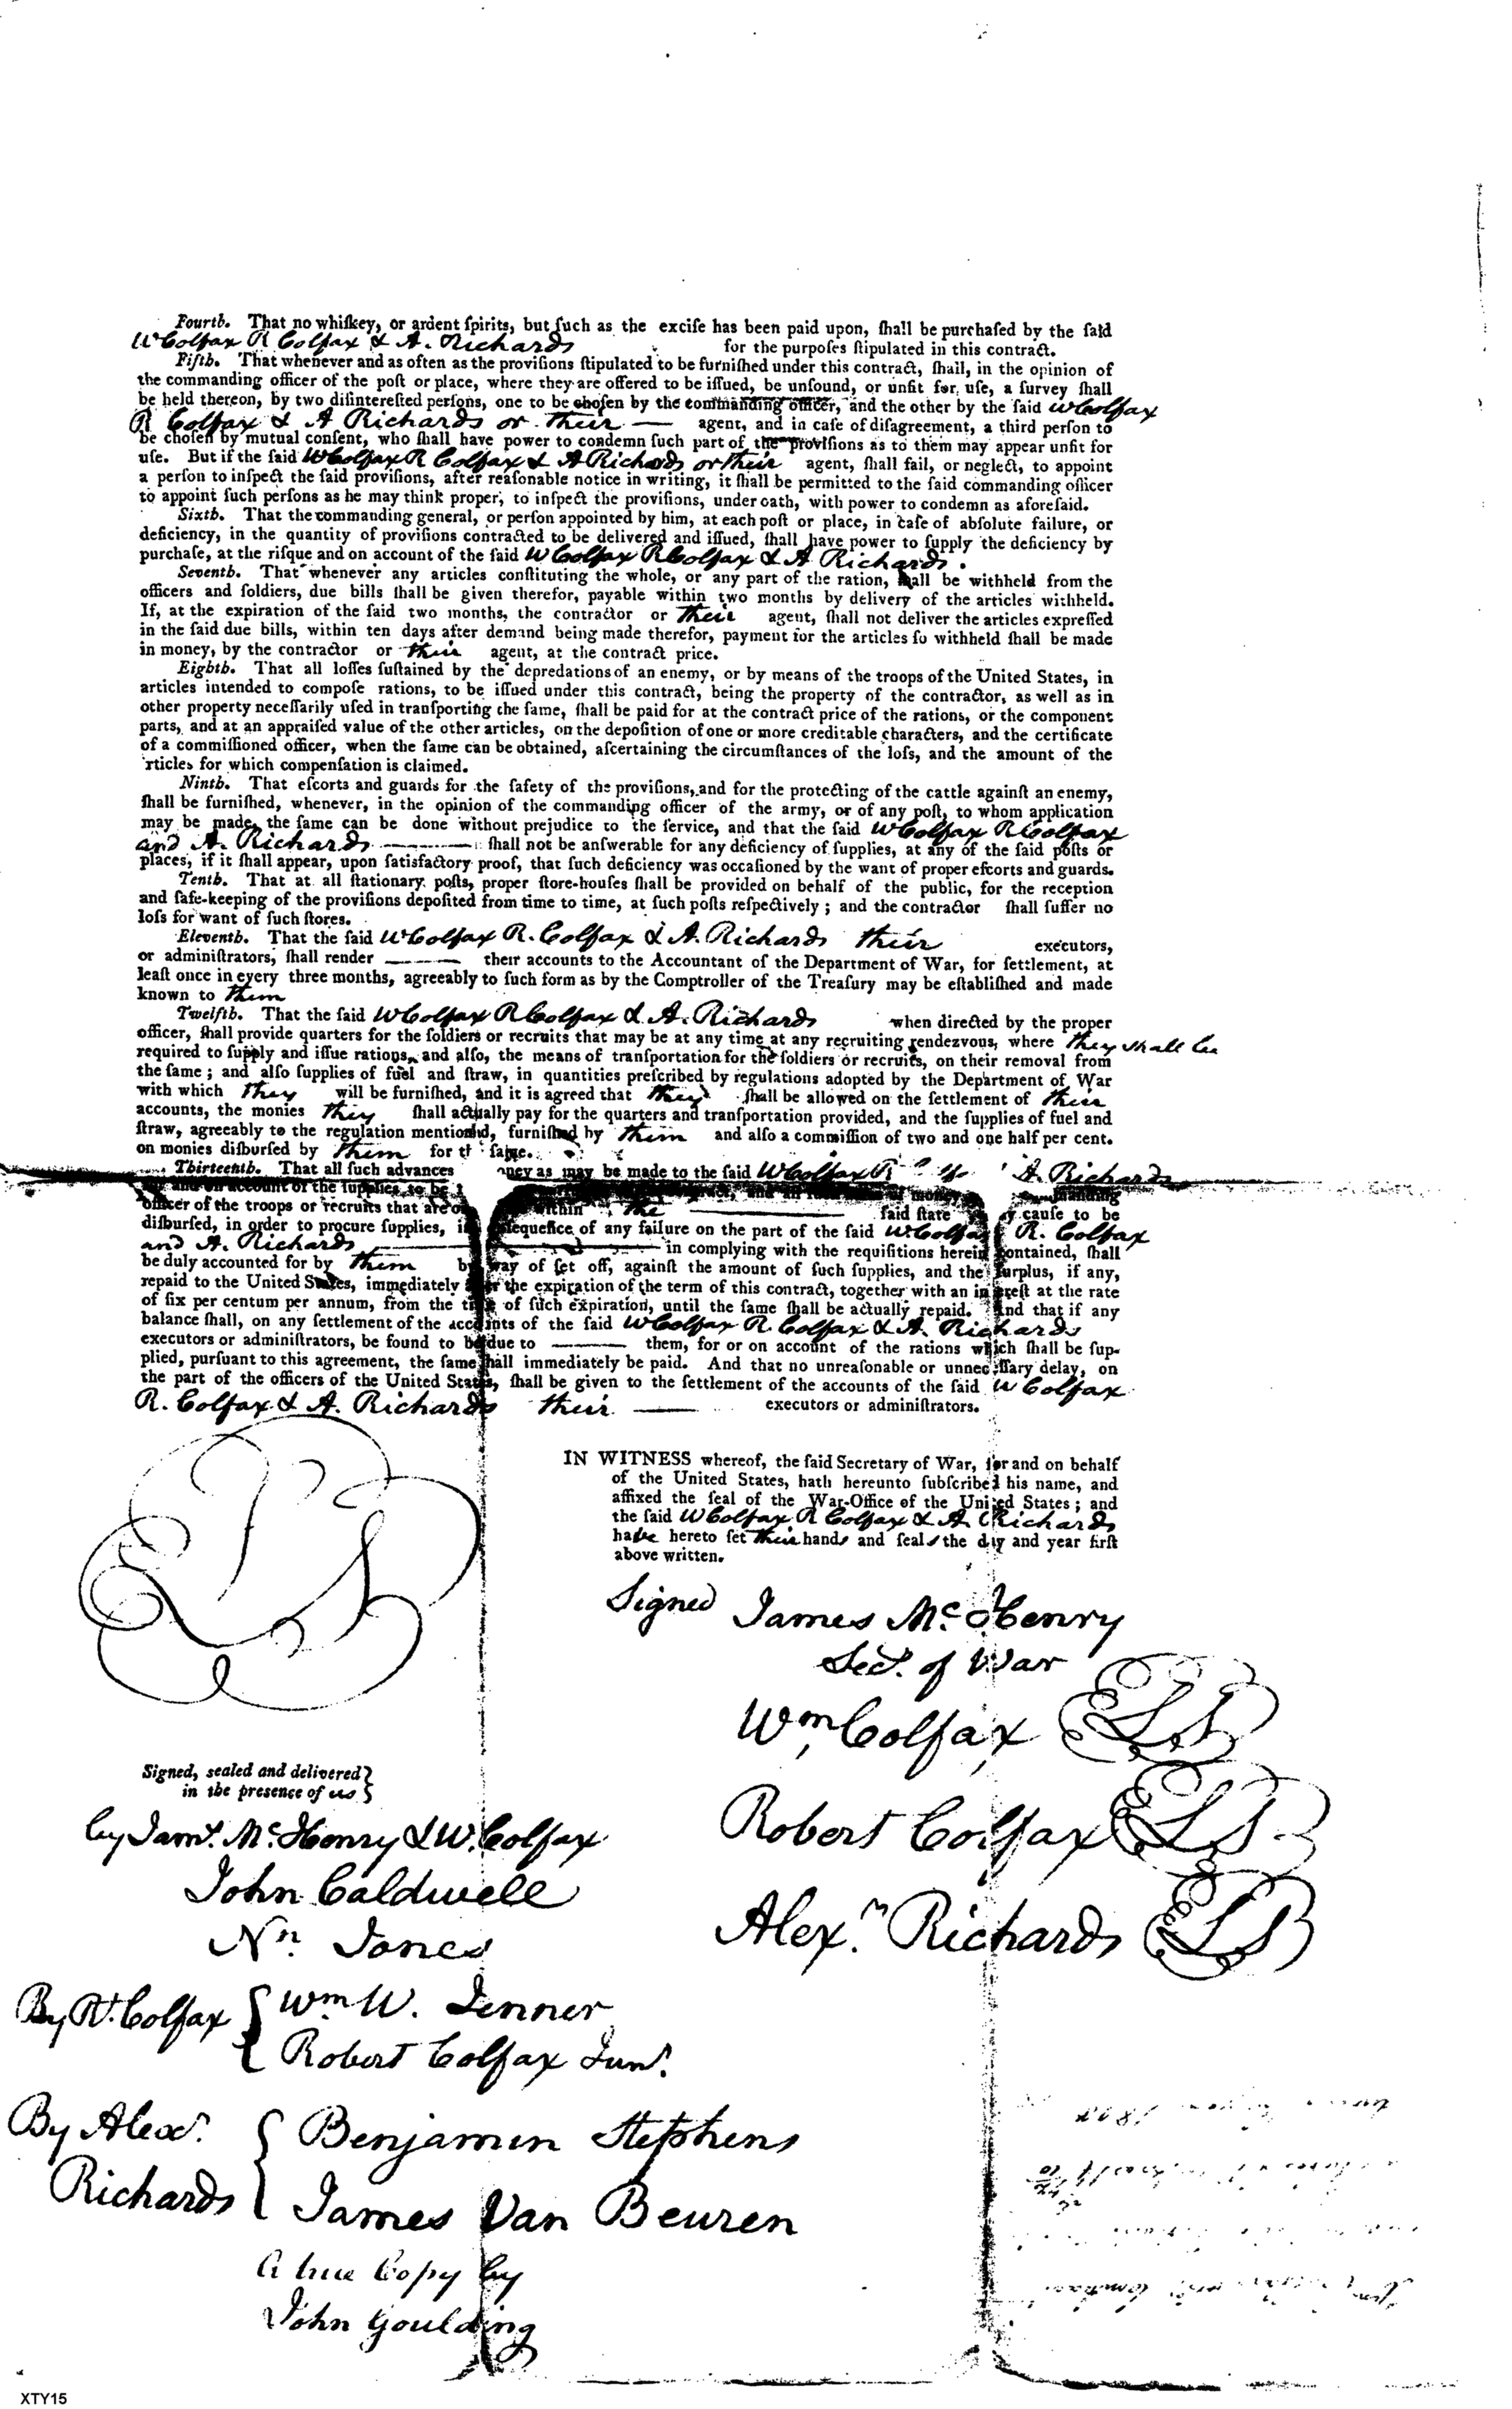 Fourth. That no whiſkey, or ardent ſpirits, but ſuch as the exciſe has been paid upon, ſhall be purchaſed by the ſaid
W Colfax R Colfax & A. Richards for the purpoſes ſtipulated in this contract.
Fifth. That whenever and as often as the proviſions ſtipulated to be furniſhed under this contract, ſhall, in the opinion of
the commanding officer of the poſt or place, where they are offered to be iſſued, be unſound, or unfit for uſe, a ſurvey ſhall
be held thereon, by two diſintereſted perſons, one to be choſen by the commanding officer, and the other by the ſaid W Colfax
R Colfax & A Richards or their — agent, and in caſe of diſagreement, a third perſon to
be choſen by mutual conſent, who ſhall have power to condemn ſuch part of the proviſions as to them may appear unfit for
uſe. But if the ſaid W Colfax R Colfax & A Richards or their agent, ſhall fail, or neglect, to appoint
a perſon to inſpect the ſaid proviſions, after reaſonable notice in writing, it ſhall be permitted to the ſaid commanding officer
to appoint ſuch perſons as he may think proper, to inſpect the proviſions, under oath, with power to condemn as aforeſaid.
Sixth. That the commanding general, or perſon appointed by him, at each poſt or place, in caſe of abſolute failure, or
deficiency, in the quantity of proviſions contracted to be delivered and iſſued, ſhall have power to ſupply the deficiency by
purchaſe, at the riſque and on account of the ſaid W Colfax R Colfax & A Richards.
Seventh. That whenever any articles conſtituting the whole, or any part of the ration, ſhall be withheld from the
officers and ſoldiers, due bills ſhall be given therefor, payable within two months by delivery of the articles withheld.
If, at the expiration of the ſaid two months, the contractor or their agent, ſhall not deliver the articles expreſſed
in the ſaid due bills, within ten days after demand being made therefor, payment for the articles ſo withheld ſhall be made
in money, by the contractor or their agent, at the contract price.
Eighth. That all loſſes ſuſtained by the depredations of an enemy, or by means of the troops of the United States, in
articles intended to compoſe rations, to be iſſued under this contract, being the property of the contractor, as well as in
other property neceſſarily uſed in tranſporting the ſame, ſhall be paid for at the contract price of the rations, or the component
parts, and at an appraiſed value of the other articles, on the depoſition of one or more creditable characters, and the certificate
of a commiſſioned officer, when the ſame can be obtained, aſcertaining the circumſtances of the loſs, and the amount of the
rticles for which compenſation is claimed.
Ninth. That eſcorts and guards for the ſafety of the proviſions, and for the protecting of the cattle againſt an enemy,
ſhall be furniſhed, whenever, in the opinion of the commanding officer of the army, or of any poſt, to whom application
may be made, the ſame can be done without prejudice to the ſervice, and that the ſaid W Colfax R Colfax
and A. Richards ——— ſhall not be anſwerable for any deficiency of ſupplies, at any of the ſaid poſts or
places, if it ſhall appear, upon ſatisfactory proof, that ſuch deficiency was occaſioned by the want of proper eſcorts and guards.
Tenth. That at all ſtationary poſts, proper ſtore-houſes ſhall be provided on behalf of the public, for the reception
and ſafe-keeping of the proviſions depoſited from time to time, at ſuch poſts reſpectively; and the contractor ſhall ſuffer no
loſs for want of ſuch ſtores.
Eleventh. That the ſaid W Colfax R. Colfax & A. Richards their executors,
or adminiſtrators, ſhall render ——— their accounts to the Accountant of the Department of War, for ſettlement, at
leaſt once in every three months, agreeably to ſuch form as by the Comptroller of the Treaſury may be eſtabliſhed and made
known to them
Twelfth. That the ſaid W Colfax R Colfax & A. Richards when directed by the proper
officer, ſhall provide quarters for the ſoldiers or recruits that may be at any time at any recruiting rendezvous, where they shall be
required to ſupply and iſſue rations, and alſo, the means of tranſportation for the ſoldiers or recruits, on their removal from
the ſame; and alſo ſupplies of fuel and ſtraw, in quantities preſcribed by regulations adopted by the Department of War
with which they will be furniſhed, and it is agreed that they ſhall be allowed on the ſettlement of their
accounts, the monies they ſhall actually pay for the quarters and tranſportation provided, and the ſupplies of fuel and
ſtraw, agreeably to the regulation mentioned, furniſhed by them and alſo a commiſſion of two and one half per cent.
on monies diſburſed by them for the ſame.
Thirteenth. That all ſuch advances money as may be made to the ſaid W Colfax R A. Richards
and on account of the ſupplies to be
officer of the troops or recruits that are within the ——— ſaid ſtate cauſe to be
diſburſed, in order to procure ſupplies, in conſequence of any failure on the part of the ſaid W Colfax R. Colfax
and A. Richards ——— in complying with the requiſitions herein contained, ſhall
be duly accounted for by them by way of ſet off, againſt the amount of ſuch ſupplies, and the ſurplus, if any,
repaid to the United States, immediately after the expiration of the term of this contract, together with an intereſt at the rate
of ſix per centum per annum, from the time of ſuch expiration, until the ſame ſhall be actually repaid. And that if any
balance ſhall, on any ſettlement of the accounts of the ſaid W Colfax R. Colfax & A. Richards
executors or adminiſtrators, be found to be due to ——— them, for or on account of the rations which ſhall be ſup-
plied, purſuant to this agreement, the ſame ſhall immediately be paid. And that no unreaſonable or unneceſſary delay, on
the part of the officers of the United States, ſhall be given to the ſettlement of the accounts of the ſaid W Colfax
R. Colfax & A. Richards their ——— executors or adminiſtrators.
IN WITNESS whereof, the ſaid Secretary of War, for and on behalf
of the United States, hath hereunto ſubſcribed his name, and
affixed the ſeal of the War-Office of the United States; and
the ſaid W Colfax R Colfax & A Richards
have hereto ſet their hands and ſeals the day and year firſt
above written.
LS
Signed James McHenry
Secy. of War
Wm Colfax LS
Robert Colfax LS
Alexr. Richards LS
Signed, sealed and delivered
in the presence of us
by Jams. McHenry & W. Colfax
John Caldwell
Nn. Jones
By Rt. Colfax { Wm W. Jenner
Robert Colfax Junr.
By Alexr. Richards { Benjamin Stephens
James Van Beuren
A true Copy by
John Goulding
XTY15